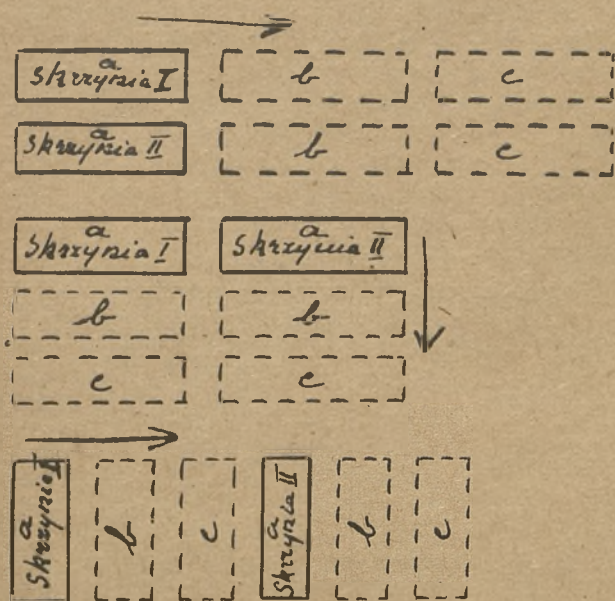 a b c
Skrzynia I
a b c
Skrzynia II
a a
Skrzynia I Skrzynia II
b b
c c
a Skrzynia I b c a Skrzynia II b c